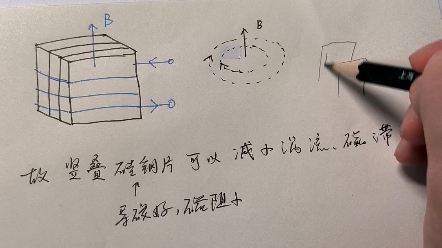 B
B
故 竖叠 硅钢片 可以 减小 涡流、磁滞
导磁好,磁阻小